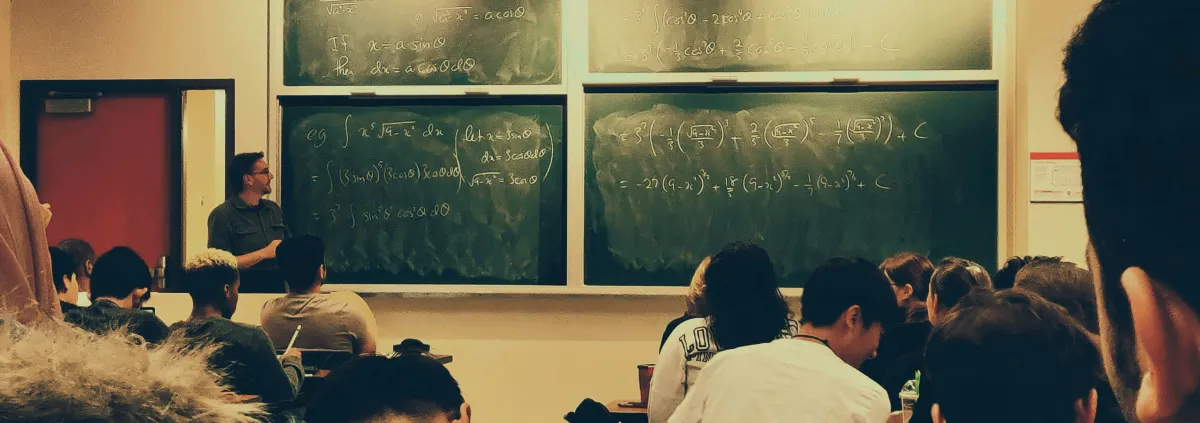 √a²-x²
√a²-x² = a cosθ
If x = a sinθ
then dx = a cosθ dθ
= 3⁷ ∫(cos²θ - 2cos⁴θ + cos⁶θ)
= 3⁷(-1/3 cos³θ + 2/5 cos⁵θ - 1/7 cos⁷θ) + C
eg ∫ x⁵ √9-x² dx (let x = 3 sinθ
dx = 3 cosθ dθ
√9-x² = 3 cosθ)
= ∫ (3 sinθ)⁵ (3 cosθ) 3 cosθ dθ
= 3⁷ ∫ sin⁵θ cos²θ dθ
= 3⁷ (-1/3 (√9-x²/3)³ + 2/5 (√9-x²/3)⁵ - 1/7 (√9-x²/3)⁷) + C
= -27 (9-x²)^3/2 + 18/5 (9-x²)^5/2 - 1/7 (9-x²)^7/2 + C
LO